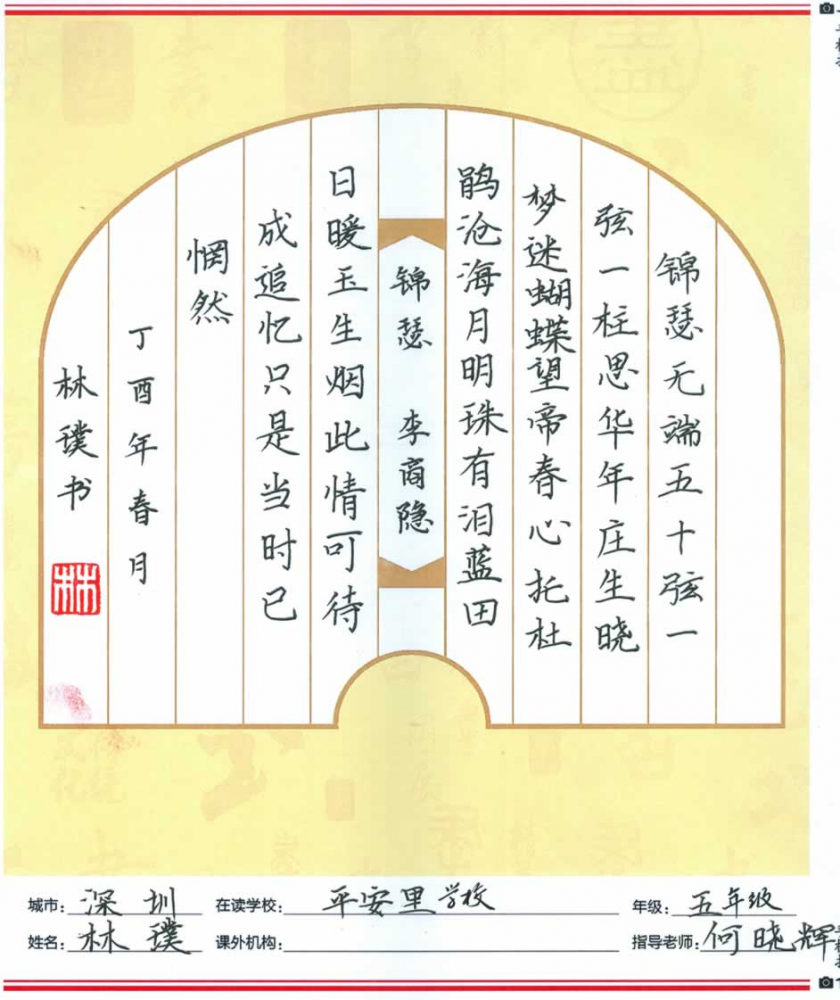 锦瑟无端五十弦一
弦一柱思华年庄生晓
梦迷蝴蝶望帝春心托杜
鹃沧海月明珠有泪蓝田
锦瑟 李商隐
日暖玉生烟此情可待
成追忆只是当时已
惘然
丁酉年春月
林璞书
林
城市：深圳 在读学校：平安里学校 年级：五年级
姓名：林璞 课外机构： 指导老师：何晓辉